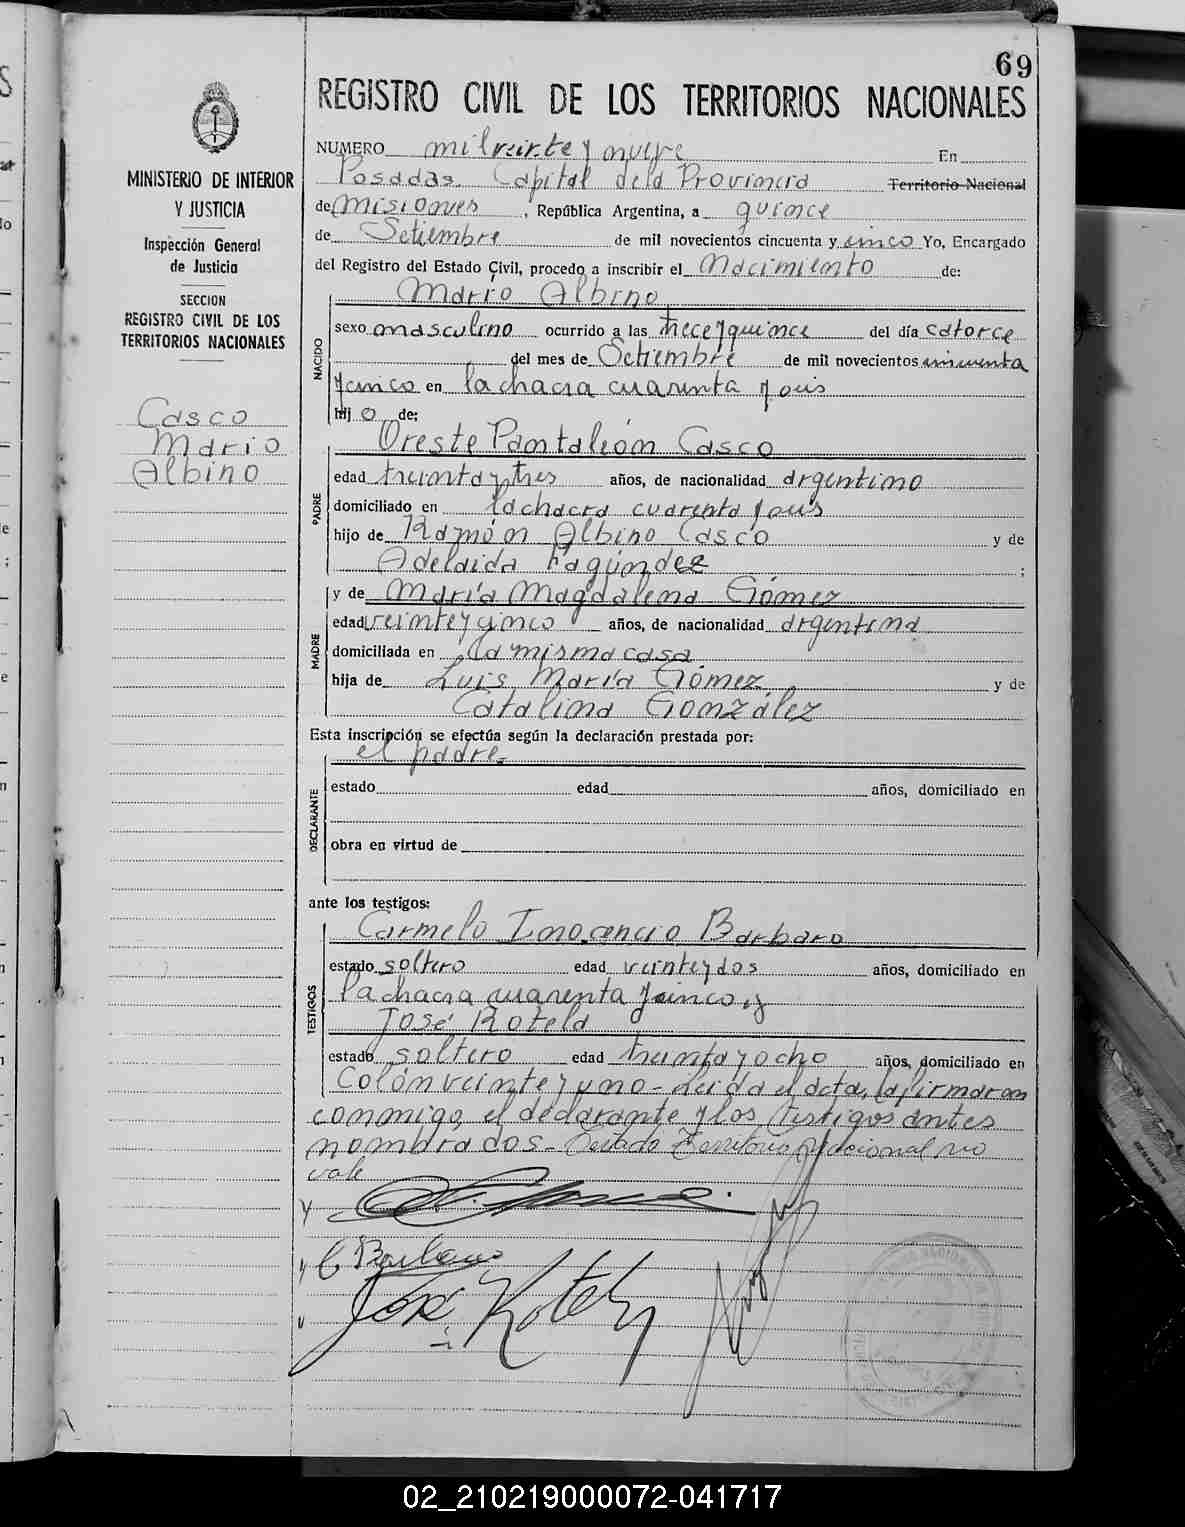 69
REGISTRO CIVIL DE LOS TERRITORIOS NACIONALES
MINISTERIO DE INTERIOR
Y JUSTICIA
Inspección General
de Justicia
SECCION
REGISTRO CIVIL DE LOS
TERRITORIOS NACIONALES
Casco
Mario
Albino
NUMERO mil veinte y nueve En
Posadas Capital de la Provincia Territorio Nacional
de Misiones, República Argentina, a quince
de Setiembre de mil novecientos cincuenta y cinco Yo, Encargado
del Registro del Estado Civil, procedo a inscribir el Nacimiento de:
Mario Albino
NACIDO
sexo masculino ocurrido a las trece y quince del día catorce
del mes de Setiembre de mil novecientos cincuenta
y cinco en la chacra cuarenta y
hij o de:
Oreste Pantaleón Casco
PADRE
edad treinta y tres años, de nacionalidad argentino
domiciliado en la chacra cuarenta y
hijo de Ramón Albino Casco y de
Adelaida Fagúndez ;
y de María Magdalena Gómez
MADRE
edad veinte y cinco años, de nacionalidad argentina
domiciliada en la misma casa
hija de Luis María Gómez y de
Catalina González
Esta inscripción se efectúa según la declaración prestada por:
el padre.
DECLARANTE
estado edad años, domiciliado en
obra en virtud de
ante los testigos:
Carmelo Inocencio Barbaro
TESTIGOS
estado soltero edad veinte y dos años, domiciliado en
la chacra cuarenta y cinco, y
José Rotela
estado soltero edad treinta y ocho años, domiciliado en
Colón veinte y uno - Leida el acta, la firmaron
conmigo, el declarante y los testigos antes
nombrados - Testado Territorio Nacional no
vale
C Barbaro
José Rotela
02_210219000072-041717